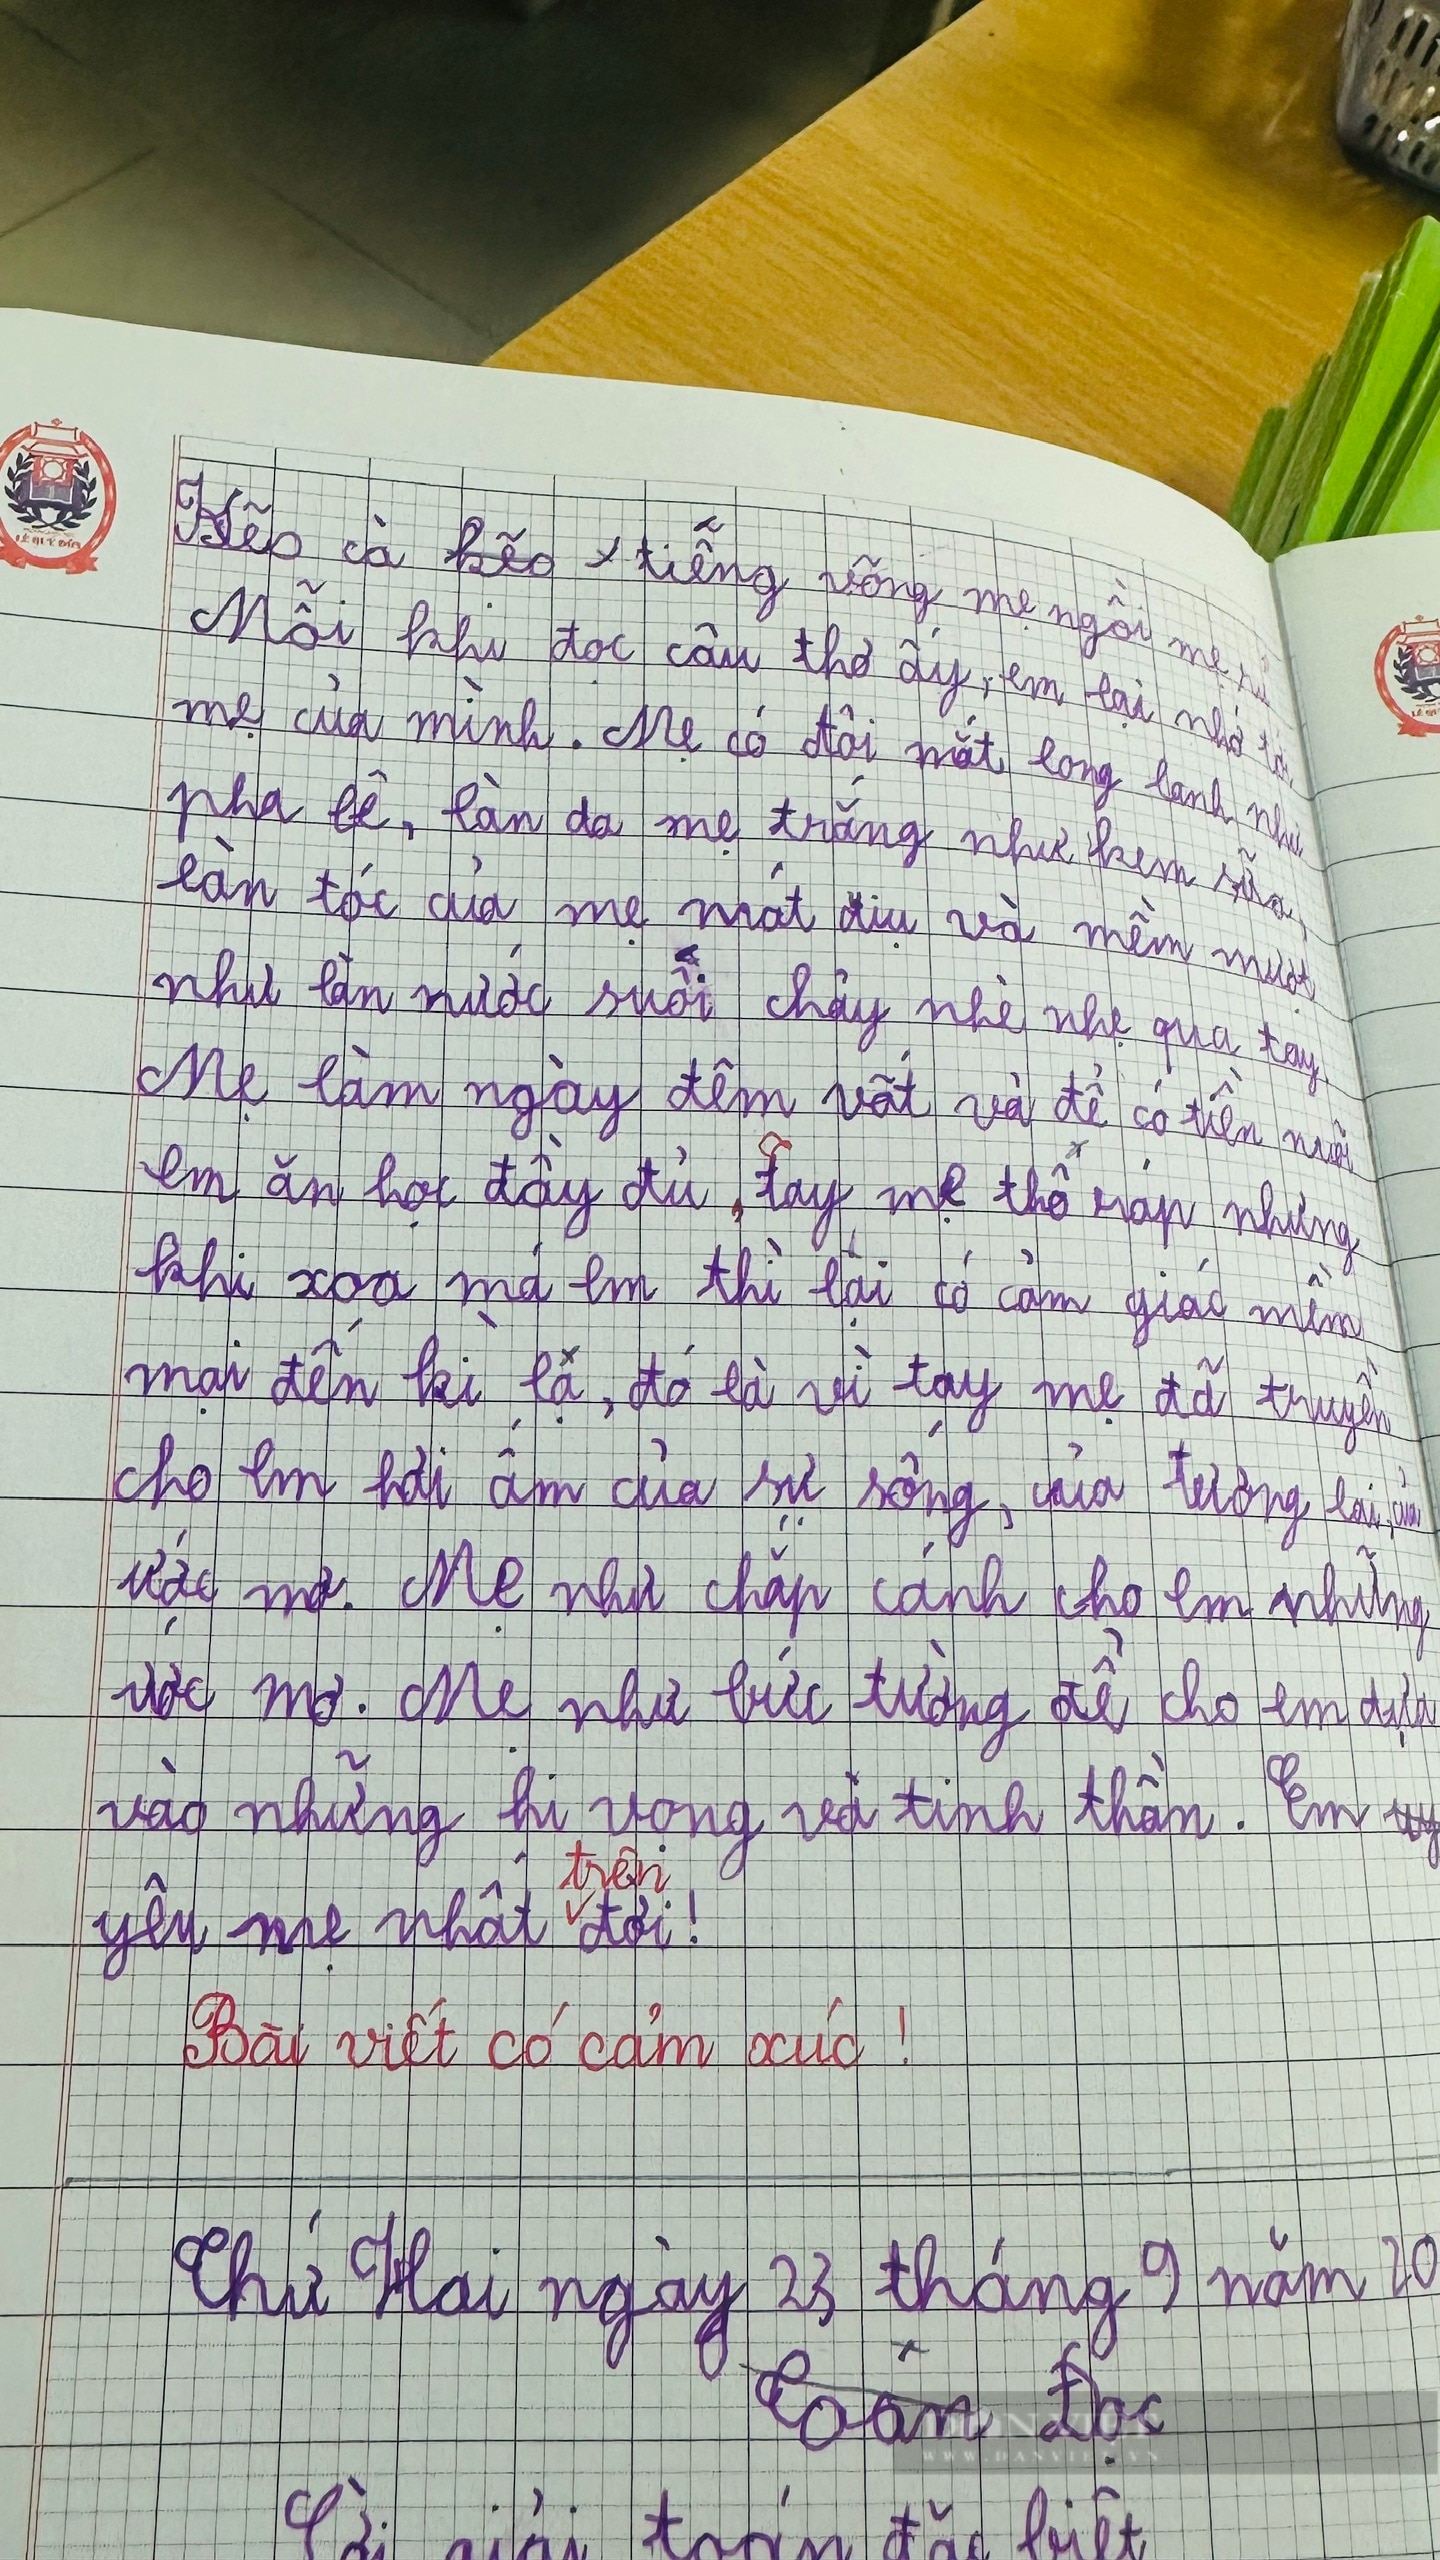 Kẽo cà kẽo tiếng võng mẹ ngồi mẹ ru
Mỗi khi đọc câu thơ ấy, em lại nhớ tới
mẹ của mình. Mẹ có đôi mắt long lanh như
pha lê, làn da mẹ trắng như kem sữa,
làn tóc của mẹ mát dịu và mềm mượt
như làn nước suối chảy nhè nhẹ qua tay.
Mẹ làm ngày đêm vất vả để có tiền nuôi
em ăn học đầy đủ, tay mẹ thô ráp nhưng
khi xoa má em thì lại có cảm giác mềm
mại đến kì lạ, đó là vì tay mẹ đã truyền
cho em hơi ấm của sự sống, của tương lai, của
ước mơ. Mẹ như chắp cánh cho em những
ước mơ. Mẹ như bức tường để cho em dựa
vào những hi vọng và tinh thần. Em
yêu mẹ nhất trên đời!
Bài viết có cảm xúc!
Thứ Hai ngày 23 tháng 9 năm 20
Toán Đọc
giải toán đặc biệt
WWW.DANVIET.VN